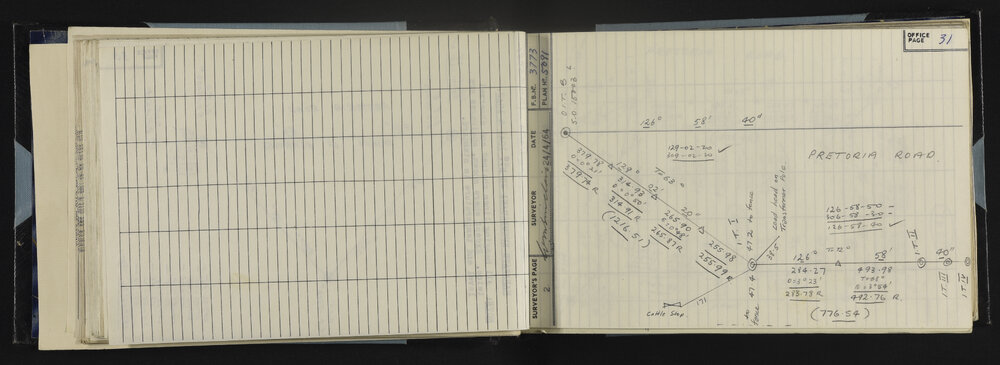 OFFICE PAGE 31
F.B. Nº. 3773
PLAN Nº. 5091
DATE 24/4/64
SURVEYOR
SURVEYOR'S PAGE 2
O.I.T. B
S.O. 15923
126° 58' 40"
129-02-20
309-02-20 ✓
PRETORIA ROAD
379.78
0=0°21'
379.74 R
129° 02' 20"
T=63°
314.93
0=0°50'
314.91 R
265.90
0=0°48'
265.87 R
(1216.51)
255.98
255.99 R
I.T. I
47.2 to fence
38.5
Lead head on
Transformer Pole
126-58-50
306-58-30
126-58-40 ✓
126° T=72° 58' 40"
284.27
0=3°23'
283.78 R
493.98
T=68°
0=3°54'
492.76 R
(776.54)
I.T. II
I.T. III
I.T. IV
171
Cattle Stop
47.4 to fence